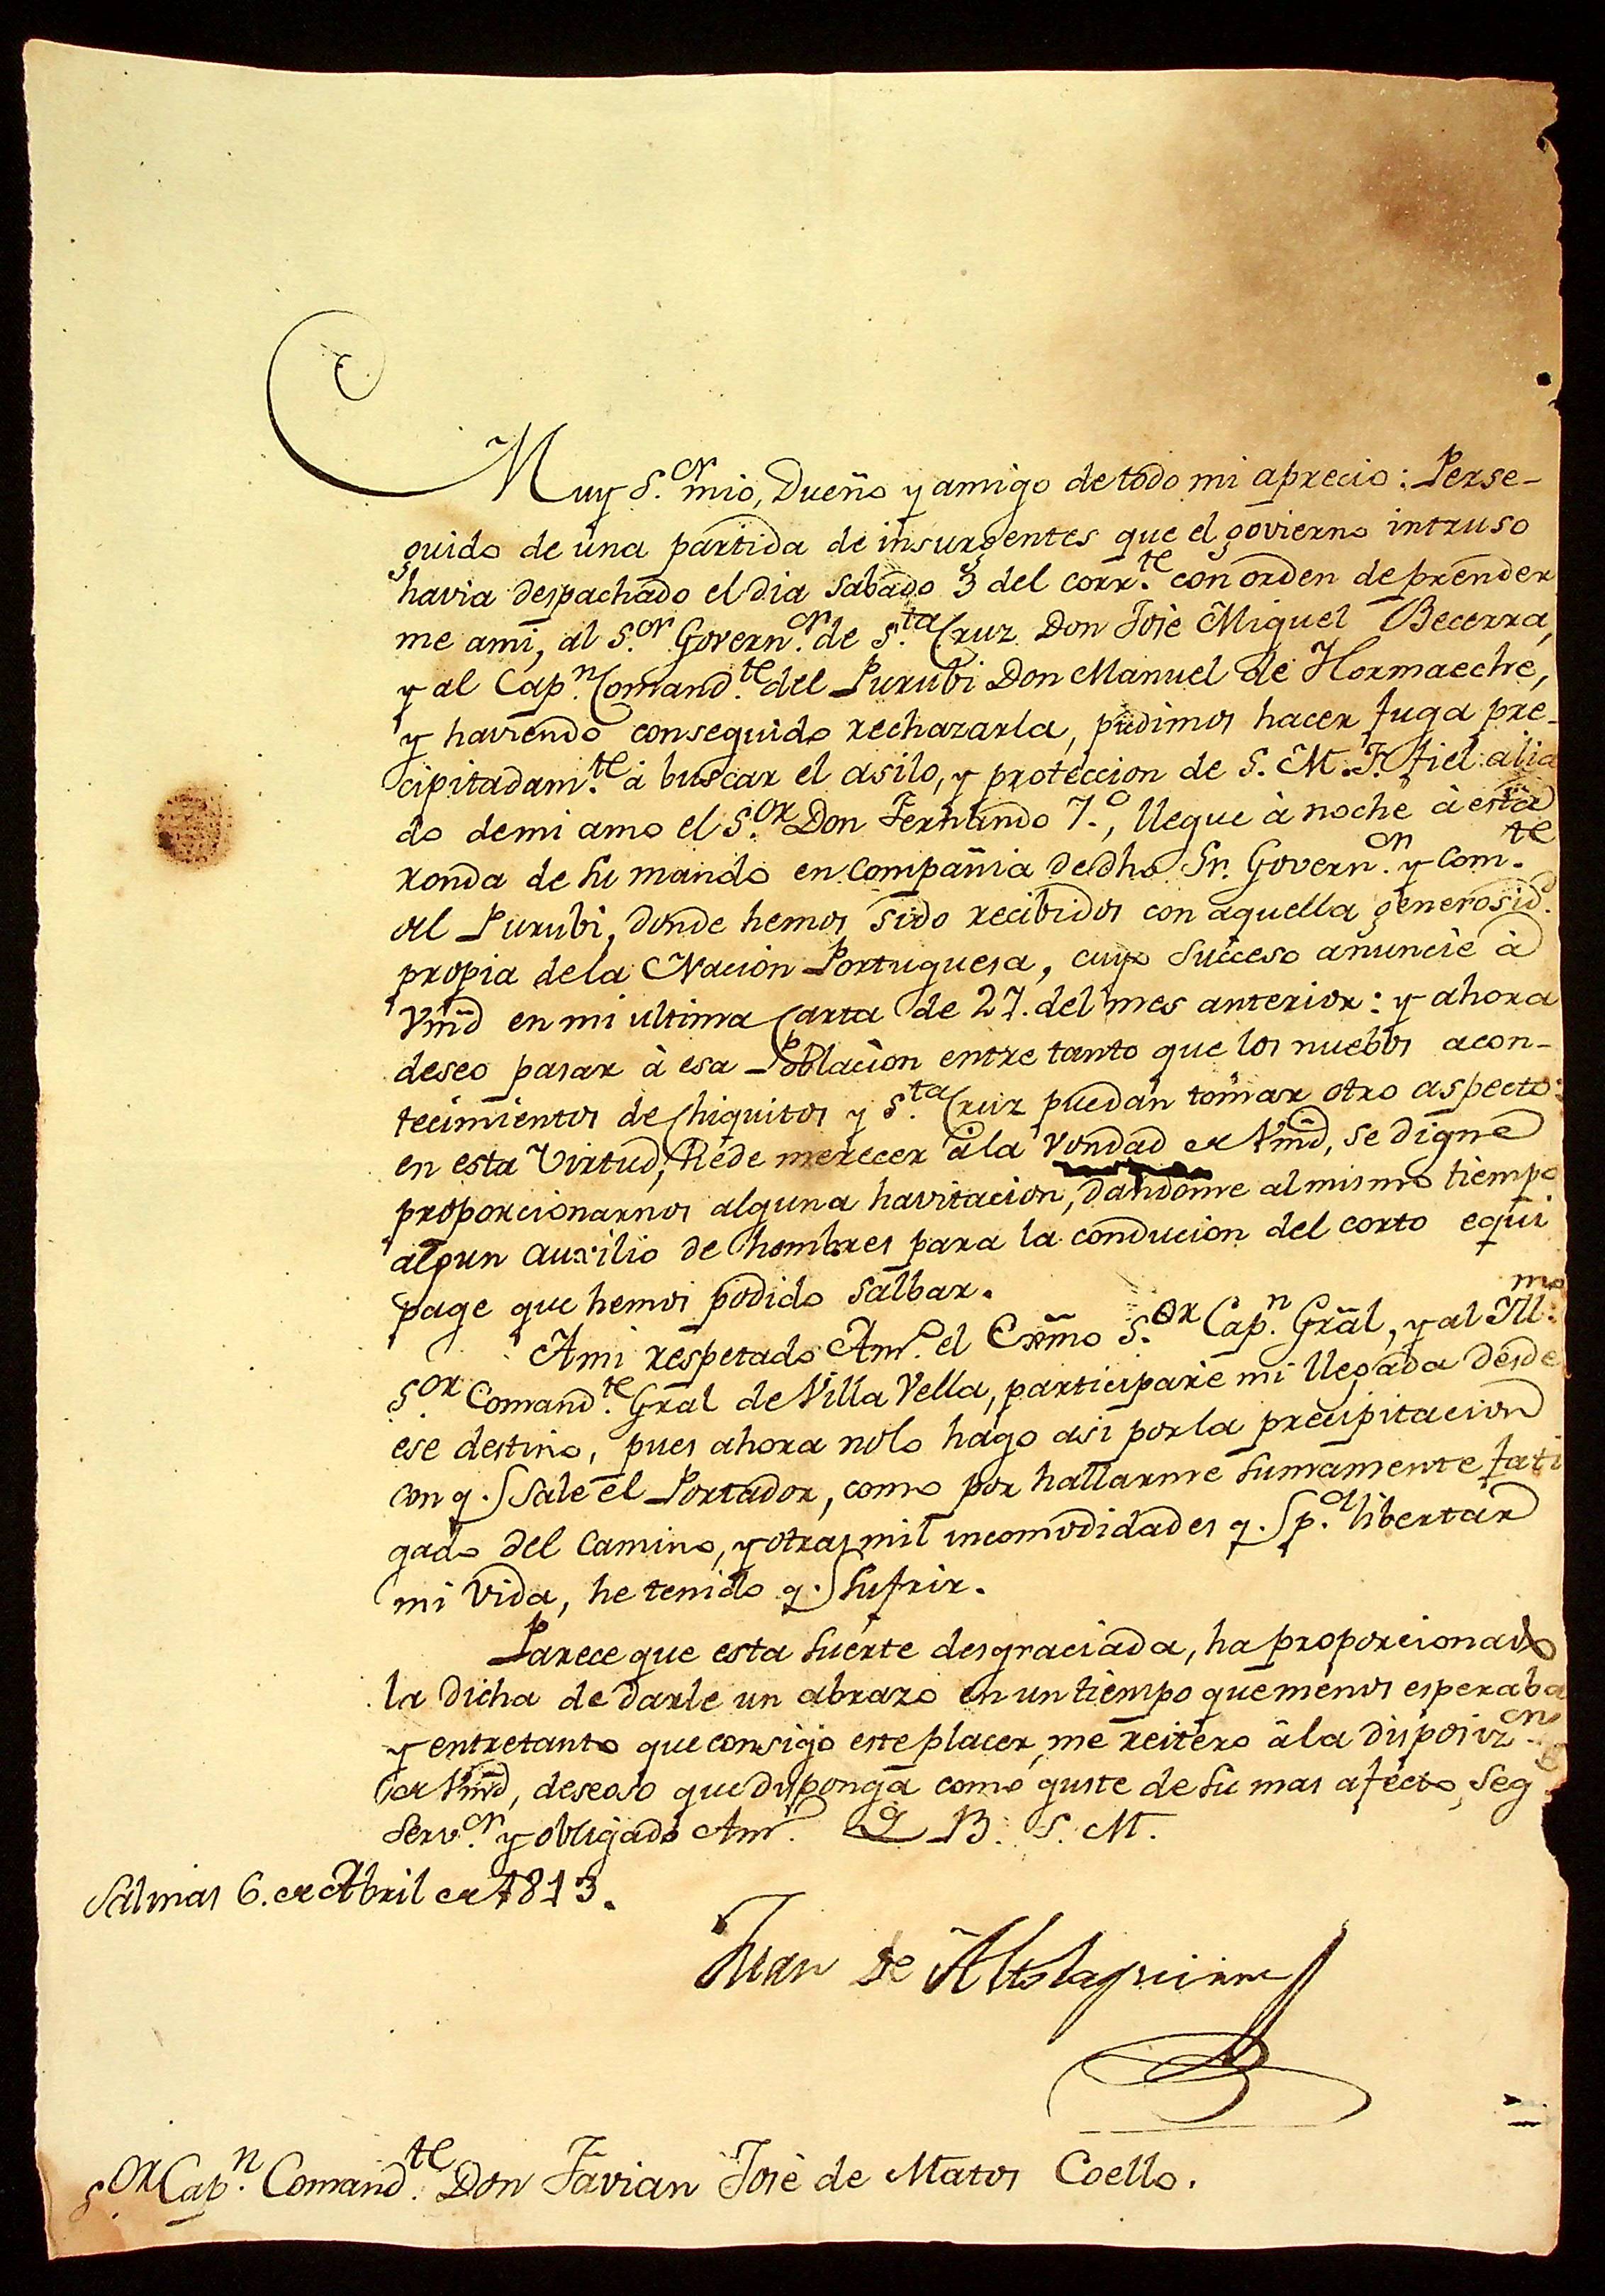 Muy S.or mio, Dueño y amigo de todo mi aprecio: Perse-
guido de una partida de insurgentes que el govierno intruso
havia despachado el dia sabado 3 del corr.te con orden de prender
me a mi, al S.or Govern.or de S.ta Cruz Don José Miguel Becerra,
y al Cap.n Comand.te del Purubi Don Manuel de Hormaeche,
y haviendo conseguido rechazarla, pudimos hacer fuga pre-
cipitadam.te à buscar el asilo, y proteccion de S. M. F. fiel alia
do de mi amo el S.or Don Fernando 7.º, llegue à noche à esta
ronda de su mando en compañia de dho Sr. Govern.or y Com.te
del Purubi, donde hemos sido recibidos con aquella generosid.
propia de la Nacion Portuguesa, cuyo succeso anuncié à
Vmd en mi ultima Carta de 27. del mes anterior: y ahora
deseo pasar à esa Poblacion entre tanto que los nuebos acon-
tecimientos de Chiquitos y S.ta Cruz puedan tomar otro aspecto:
en esta Virtud, He de merecer à la vondad de Vmd, se digne
proporcionarnos alguna havitacion, dandome al mismo tiempo
algun auxilio de hombres para la conducion del corto equi
page que hemos podido salbar.
A mi respetado Am.º el Exmo S.or Cap.n Gral, y al Ill.mo
S.or Comand.te Gral de Villa Vella, participaré mi llegada desde
ese destino, pues ahora no lo hago asi por la precipitacion
con q. sale el Portador, como por hallarme sumamente fati
gado del camino, y otras mil incomodidades q. p.a libertar
mi vida, he tenido q. sufrir.
Parece que esta suerte desgraciada, ha proporcionado
la dicha de darle un abrazo en un tiempo que menos esperaba
y entretanto que consigo este placer, me reitero à la disposiz.on
de Vmd, deseoso que disponga como guste de su mas afecto, seg
Serv.or y obligado Am.º Q B. S. M.
Salinas 6. de Abril de 1813.
Juan de Altolaguirre
S.or Cap.n Comand.te Don Favian José de Matos Coello.